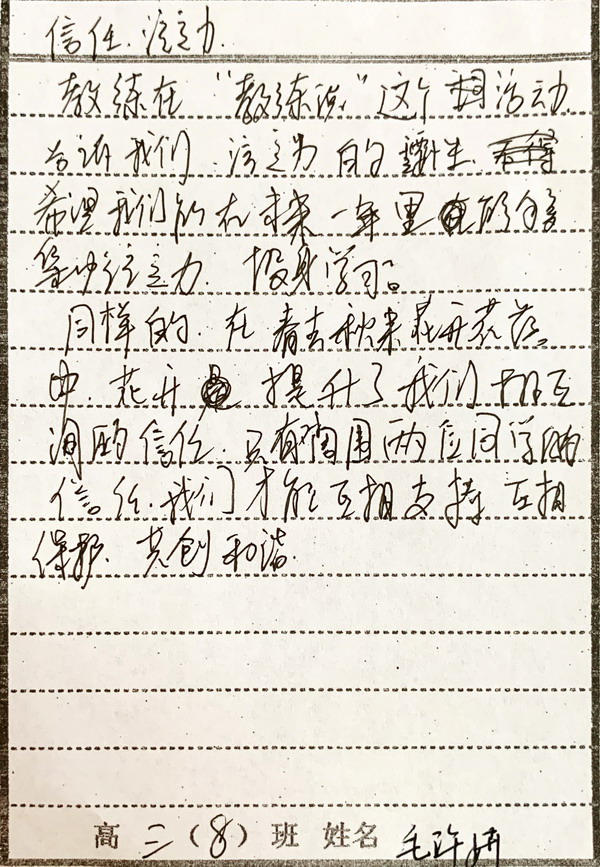 信任.注意力.
教练在“教练说”这个活动.
告诉我们注意力的
希望我们能在未来一年里能够
集中注意力.投身学习。
同样的.在春去秋来花开花落
中.花开提升了我们相互
间的信任.只有周围两位同学的
信任.我们才能互相支持互相
保护.共创和谐.
高二(8)班 姓名 毛许婧